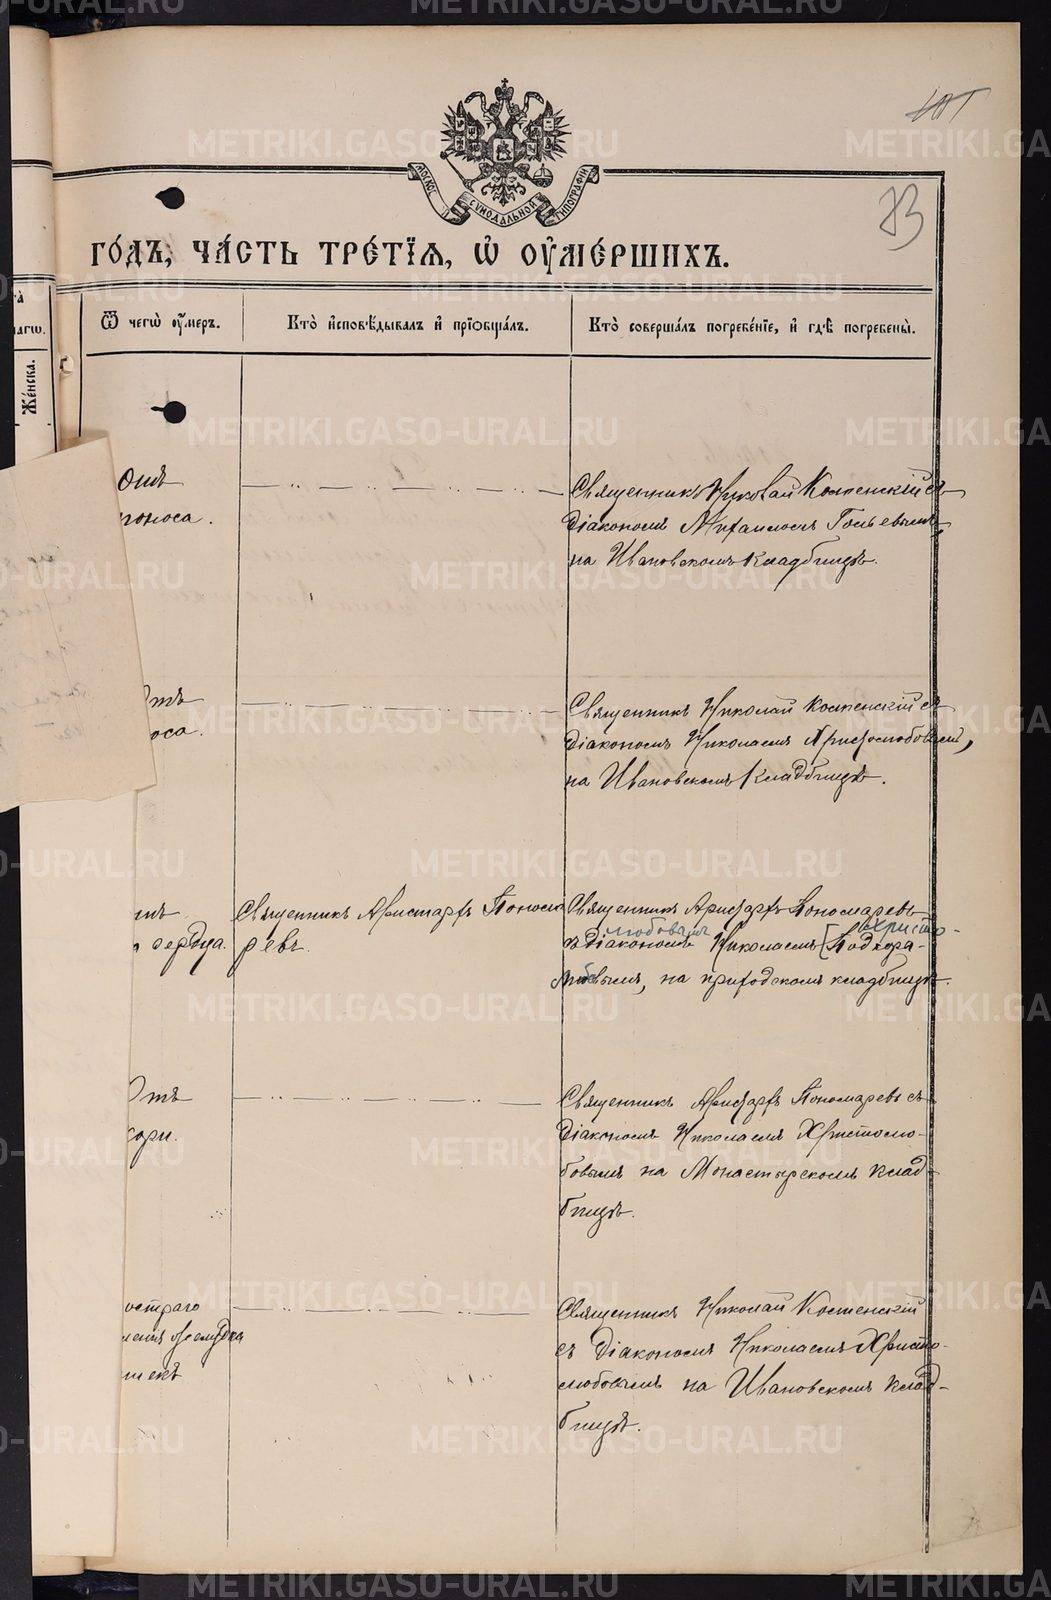 МОСКОВ. СѴНОДАЛЬНОЙ ТИПОГРАФІИ
73
ГО́ДЪ, ЧА́СТЬ ТРЕ́ТІѦ, Ѽ ОУ҆МЕ́РШИХЪ.
Ѿ чегѡ̀ оу҆́мер.
Кто̀ и҆сповѣ́дывалъ и҆ прїѡбща́лъ.
Кто̀ соверша́лъ погребе́нїе, и҆ гдѣ̀ погребены̀.
Же́нска.
Священникъ Николай Костенскій съ
діакономъ Михаиломъ
на Ивановскомъ кладбищѣ.
Отъ
Священникъ Николай Костенскій съ
діакономъ Николаемъ Христолюбовымъ,
на Ивановскомъ кладбищѣ.
сердца.
Священникъ Аристархъ Понома
ревъ
Священникъ Аристархъ Пономаревъ
любовымъ Христо-
съ діакономъ Николаемъ [Подкора-
бовымъ, на приходскомъ кладбищѣ.
Отъ
кори.
Священникъ Аристархъ Пономаревъ съ
діакономъ Николаемъ Христолю-
бовымъ на Монастырскомъ клад-
бищѣ.
остраго
Священникъ Николай Костенскій
съ діакономъ Николаемъ Христо-
любовымъ на Ивановскомъ клад-
бищѣ.
METRIKI.GASO-URAL.RU